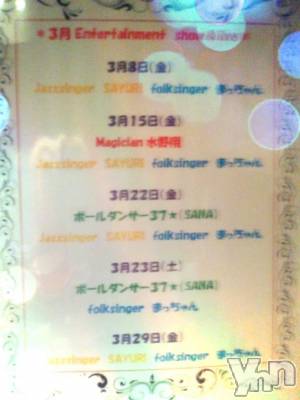 *3月 Entertainment show
3月8日(金)
Jazzsinger SAYURI folksinger まっちゃん
3月15日(金)
Magician 水野翔
Jazzsinger SAYURI folksinger まっちゃん
3月22日(金)
ポールダンサー37★(SANA)
Jazzsinger SAYURI folksinger まっちゃん
3月23日(土)
ポールダンサー37★(SANA)
folksinger まっちゃん
3月29日(金)
Jazzsinger SAYURI folksinger まっちゃん